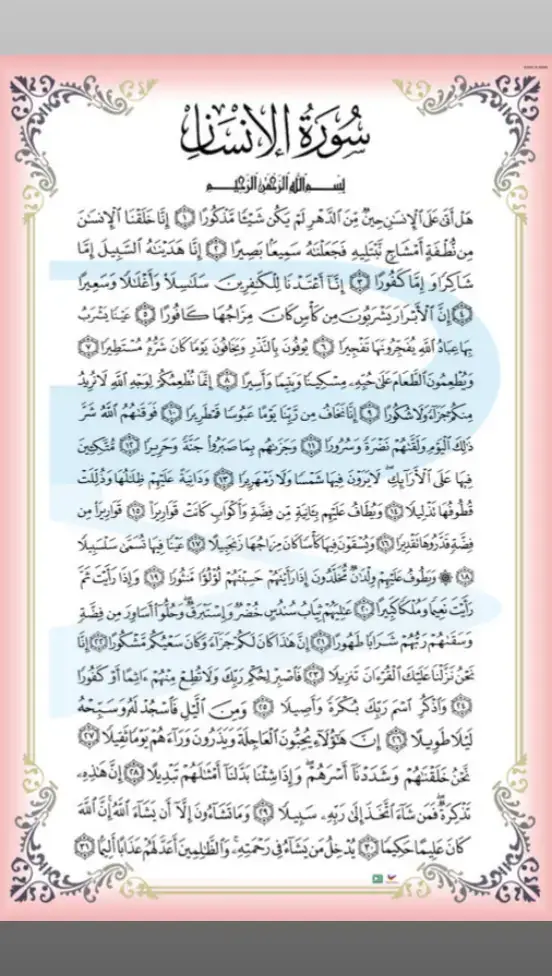 سُورَةُ الإِنسَانِ
بِسْمِ اللَّهِ الرَّحْمَٰنِ الرَّحِيمِ
هَلْ أَتَىٰ عَلَى الْإِنسَٰنِ حِينٌ مِّنَ الدَّهْرِ لَمْ يَكُن شَيْئًا مَّذْكُورًا ١ إِنَّا خَلَقْنَا الْإِنسَٰنَ
مِن نُّطْفَةٍ أَمْشَاجٍ نَّبْتَلِيهِ فَجَعَلْنَٰهُ سَمِيعًا بَصِيرًا ٢ إِنَّا هَدَيْنَٰهُ السَّبِيلَ إِمَّا
شَاكِرًا وَإِمَّا كَفُورًا ٣ إِنَّا أَعْتَدْنَا لِلْكَٰفِرِينَ سَلَٰسِلَا۟ وَأَغْلَٰلًا وَسَعِيرًا
٤ إِنَّ الْأَبْرَارَ يَشْرَبُونَ مِن كَأْسٍ كَانَ مِزَاجُهَا كَافُورًا ٥ عَيْنًا يَشْرَبُ
بِهَا عِبَادُ اللَّهِ يُفَجِّرُونَهَا تَفْجِيرًا ٦ يُوفُونَ بِالنَّذْرِ وَيَخَافُونَ يَوْمًا كَانَ شَرُّهُۥ مُسْتَطِيرًا ٧
وَيُطْعِمُونَ الطَّعَامَ عَلَىٰ حُبِّهِۦ مِسْكِينًا وَيَتِيمًا وَأَسِيرًا ٨ إِنَّمَا نُطْعِمُكُمْ لِوَجْهِ اللَّهِ لَا نُرِيدُ
مِنكُمْ جَزَآءً وَلَا شُكُورًا ٩ إِنَّا نَخَافُ مِن رَّبِّنَا يَوْمًا عَبُوسًا قَمْطَرِيرًا ١٠ فَوَقَىٰهُمُ اللَّهُ شَرَّ
ذَٰلِكَ الْيَوْمِ وَلَقَّىٰهُمْ نَضْرَةً وَسُرُورًا ١١ وَجَزَىٰهُم بِمَا صَبَرُوا۟ جَنَّةً وَحَرِيرًا ١٢ مُّتَّكِـِٔينَ
فِيهَا عَلَى الْأَرَآئِكِ ۖ لَا يَرَوْنَ فِيهَا شَمْسًا وَلَا زَمْهَرِيرًا ١٣ وَدَانِيَةً عَلَيْهِمْ ظِلَٰلُهَا وَذُلِّلَتْ
قُطُوفُهَا تَذْلِيلًا ١٤ وَيُطَافُ عَلَيْهِم بِـَٔانِيَةٍ مِّن فِضَّةٍ وَأَكْوَابٍ كَانَتْ قَوَارِيرَا۠ ١٥ قَوَارِيرَا۟ مِن
فِضَّةٍ قَدَّرُوهَا تَقْدِيرًا ١٦ وَيُسْقَوْنَ فِيهَا كَأْسًا كَانَ مِزَاجُهَا زَنجَبِيلًا ١٧ عَيْنًا فِيهَا تُسَمَّىٰ سَلْسَبِيلًا
١٨ ۞ وَيَطُوفُ عَلَيْهِمْ وِلْدَٰنٌ مُّخَلَّدُونَ إِذَا رَأَيْتَهُمْ حَسِبْتَهُمْ لُؤْلُؤًا مَّنثُورًا ١٩ وَإِذَا رَأَيْتَ ثَمَّ
رَأَيْتَ نَعِيمًا وَمُلْكًا كَبِيرًا ٢٠ عَٰلِيَهُمْ ثِيَابُ سُندُسٍ خُضْرٌ وَإِسْتَبْرَقٌ ۖ وَحُلُّوٓا۟ أَسَاوِرَ مِن فِضَّةٍ
وَسَقَىٰهُمْ رَبُّهُمْ شَرَابًا طَهُورًا ٢١ إِنَّ هَٰذَا كَانَ لَكُمْ جَزَآءً وَكَانَ سَعْيُكُم مَّشْكُورًا ٢٢ إِنَّا
نَحْنُ نَزَّلْنَا عَلَيْكَ الْقُرْءَانَ تَنزِيلًا ٢٣ فَاصْبِرْ لِحُكْمِ رَبِّكَ وَلَا تُطِعْ مِنْهُمْ ءَاثِمًا أَوْ كَفُورًا
٢٤ وَاذْكُرِ اسْمَ رَبِّكَ بُكْرَةً وَأَصِيلًا ٢٥ وَمِنَ الَّيْلِ فَاسْجُدْ لَهُۥ وَسَبِّحْهُ
لَيْلًا طَوِيلًا ٢٦ إِنَّ هَٰٓؤُلَآءِ يُحِبُّونَ الْعَاجِلَةَ وَيَذَرُونَ وَرَآءَهُمْ يَوْمًا ثَقِيلًا ٢٧
نَّحْنُ خَلَقْنَٰهُمْ وَشَدَدْنَآ أَسْرَهُمْ ۖ وَإِذَا شِئْنَا بَدَّلْنَآ أَمْثَٰلَهُمْ تَبْدِيلًا ٢٨ إِنَّ هَٰذِهِۦ
تَذْكِرَةٌ ۖ فَمَن شَآءَ اتَّخَذَ إِلَىٰ رَبِّهِۦ سَبِيلًا ٢٩ وَمَا تَشَآءُونَ إِلَّآ أَن يَشَآءَ اللَّهُ ۚ إِنَّ اللَّهَ
كَانَ عَلِيمًا حَكِيمًا ٣٠ يُدْخِلُ مَن يَشَآءُ فِى رَحْمَتِهِۦ ۚ وَالظَّٰلِمِينَ أَعَدَّ لَهُمْ عَذَابًا أَلِيمًۢا ٣١